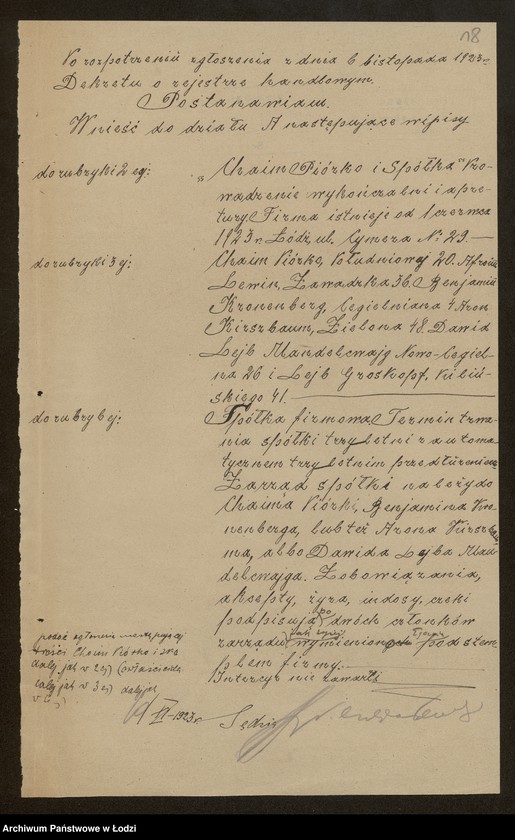 18
Po rozpatrzeniu zgłoszenia z dnia 6 listopada 1923 r.
Dekretu o rejestrze handlowym.
Postanawiam.
Wnieść do działu A następujące wpisy
do rubryki 2 ej:
„Chaim Piórko i Spółka" Pro-
wadzenie wykończalni i apre-
tury. Firma istnieje od 1 czerwca
1923 r. Łódź, ul. Cymera № 29. —
do rubryki 3 ej:
Chaim Piórko, Południowej 20. Abram
Lewin, Zawadzka 36, Benjamin
Kronenberg, Cegielniana 4 Aron
Kirszbaum, Zielona 48. Dawid
Lejb Mandelcwajg Nowo-Cegiel-
na 26 i Lejb Groskopf, Kiliń-
skiego 41.
do rubryki 6 ej:
Spółka firmowa Termin trwa-
nia spółki trzyletni z automa-
tycznem trzyletnim przedłużeniem
Zarząd spółki należy do
Chaima Piórki, Benjamina Kro-
nenberga, lub też Arona Kirszbau-
ma, albo Dawida Lejba Man-
delcwajga. Zobowiązania,
akcepty, żyra, indosy, czeki
podpisują po dwóch członków
zarządu wymienionych pod stem-
plem firmy. —
Intercyz nie zawarli
podać ogłoszenie następującej
treści Chaim Piórko i S-ka
dalej jak w 2 ej) (właściciele
dalej jak w 3 ej) dalej jak
w 6 ej)
XI-1923 r. Sędzia
Archiwum Państwowe w Łodzi